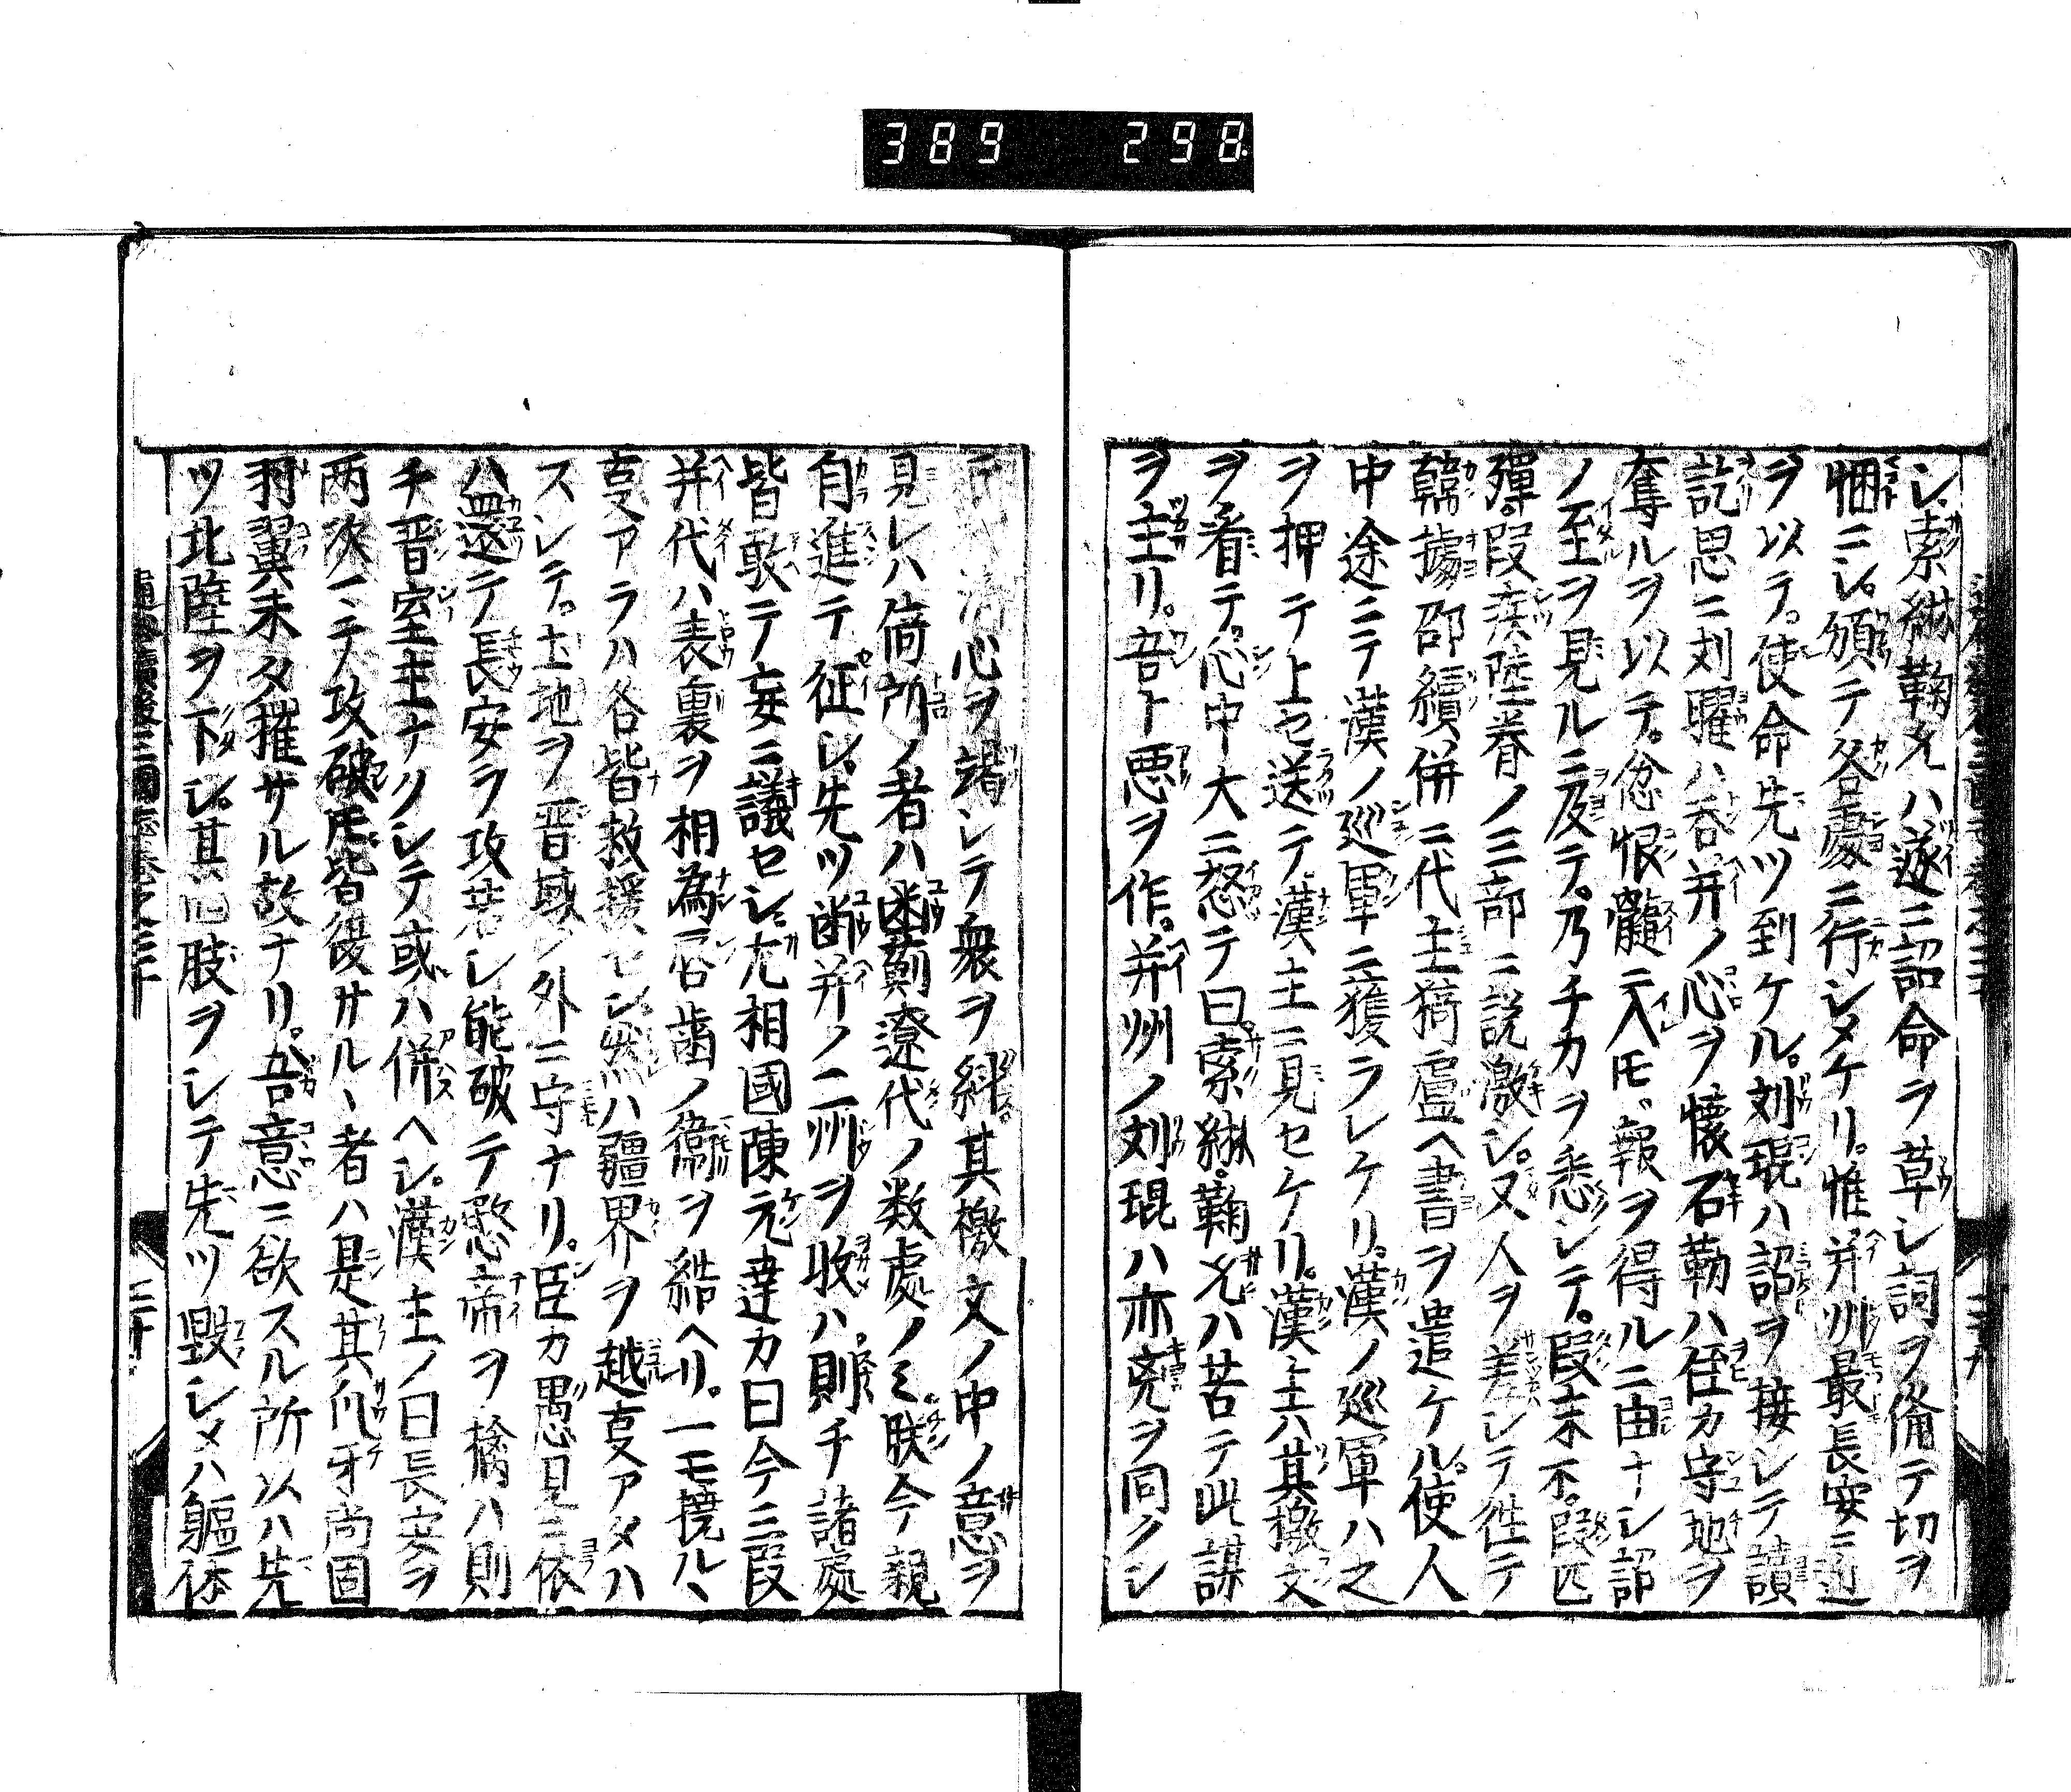 389 298
シ。索綝鞠允ハ遂ニ詔命ヲ草シ詞ヲ備テ切ヲ
悃ニシ。頒テ各處ニ行シメケリ。惟并州最長安ニ近
ヲ以テ。使命先ツ到ケル。刘琨ハ詔ヲ接シテ讀
訖思ニ刘曜ハ呑并ノ心ヲ懐石勒ハ侄カ守地ヲ
奪ルヲ以テ。忿恨髓ニ入モ。報ヲ得ルニ由ナシ詔
ノ至ヲ見ルニ及テ。乃チカヲ悉シテ。段末不。段匹
殫。段疾陸眷ノ三部ニ説激シ。又人ヲ差シテ徃テ
韓據邵續併ニ代主猗盧ヘ書ヲ遣ケル。使人
中途ニテ漢ノ巡軍ニ獲ラレケリ。漢ノ巡軍ハ之
ヲ押テ上セ送テ。漢主ニ見セケリ。漢主ハ其檄文
ヲ看テ。心中大ニ怒テ曰索綝。鞠允ハ苦テ此謀
ヲ主リ。吾ト悪ヲ作。并州ノ刘琨ハ亦兇ヲ同クシ
心ヲ竭シテ衆ヲ糾其檄文ノ中ノ意ヲ
見レハ倚所ノ者ハ幽薊遼代ノ数處ノミ。朕今親
自進テ征シ。先ツ幽并ノ二州ヲ收ハ。則チ諸處
皆敢テ妄ニ議セシ。尤相國陳元達カ曰今三段
并代ハ表裏ヲ相為唇歯ノ衞ヲ結ヘリ。一モ撓ルヽ
叓アラハ各皆救援セン。然ハ疆界ヲ越叓アタハ
スシテ。土地ヲ晋域ノ外ニ守ナリ。臣カ愚見ニ依
ハ還テ長安ヲ攻若シ能破テ愍帝ヲ擒ハ則
チ晋室主ナクシテ或ハ併ヘシ。漢主ノ曰長安ヲ
两次ニテ攻破モ皆復サルヽ者ハ是其爪牙尚固
羽翼未タ摧サル故ナリ。吾意ニ欲スル所以ハ先
ツ北陸ヲ下シ。其肢ヲシテ先ツ毀シメハ軀体